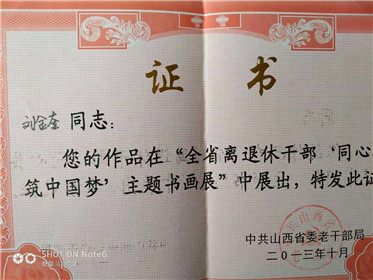 证书
刘金奎 同志：
您的作品在“全省离退休干部‘同心
筑中国梦’主题书画展”中展出，特发此证
中共山西省委老干部局
二〇一三年十月
SHOT ON NOTE6